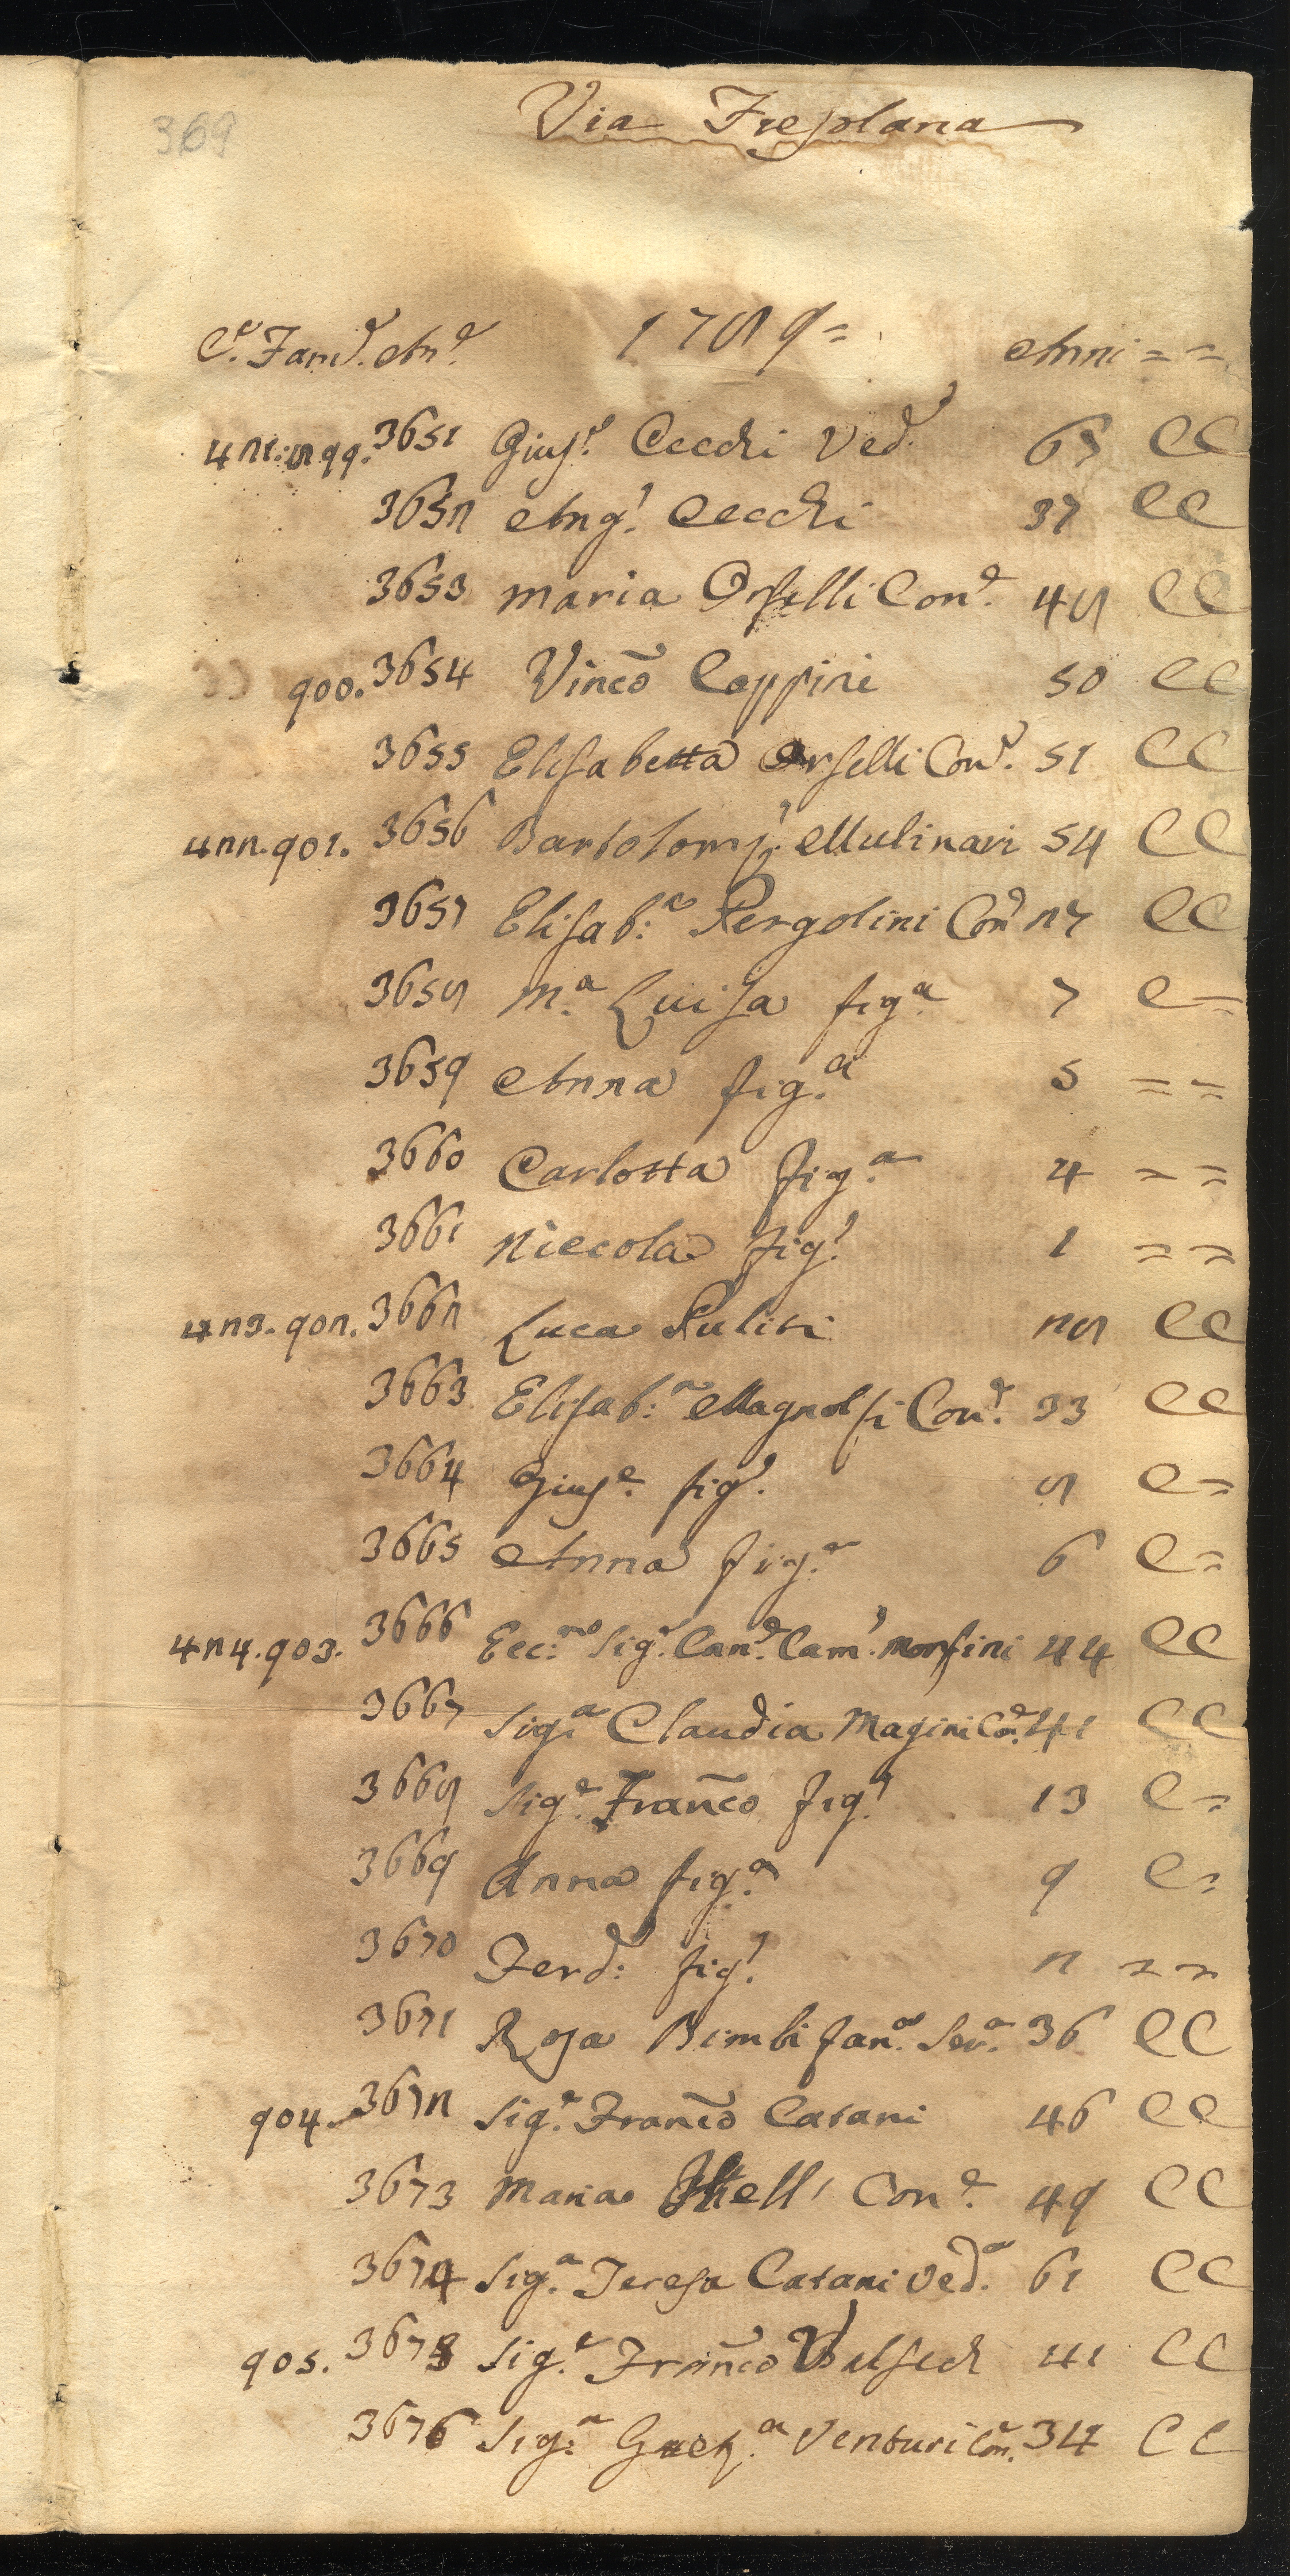 369
Via Freplana
C.e Fam.e An.e 1789= Anni = =
421: 899. 3651 Gius.e Cecchi Ved.o 65 CC
3652 Ang.o Cecchi 37 CC
3653 Maria Orselli Con.e 48 CC
900. 3654 Vinc̃o Coppini 50 CC
3655 Elisabetta Orselli Con.e 51 CC
422. 901. 3656 Bartolom.o Mulinari 54 CC
3657 Elisab:a Pergolini Con.e 27 CC
3658 M.a Luisa fig.a 7 C =
3659 Anna fig.a 5 = =
3660 Carlotta fig.a 4 = =
3661 Niccola fig.o 1 = =
423. 902. 3662 Luca Puliti 28 CC
3663 Elisab:a Magnolfi Con.e 33 CC
3664 Gius.e fig.o 8 C =
3665 Anna fig.a 6 C =
424. 903. 3666 Ecc:mo Sig.e Can.e Cam.o Morfini 44 CC
3667 Sig.a Claudia Magini Con.e 41 CC
3668 Sig.e Franc̃o fig.o 13 C =
3669 Anna fig.a 9 C =
3670 Ferd: fig.o 2 = =
3671 Rosa Bimbi fan.a Ser.a 36 CC
904. 3672 Sig.e Franc̃o Catani 46 CC
3673 Maria Con.e 49 CC
3674 Sig.a Teresa Catani Ved.a 61 CC
905. 3675 Sig.e Franc̃o 41 CC
3676 Sig.a Venturi Con.e 34 CC